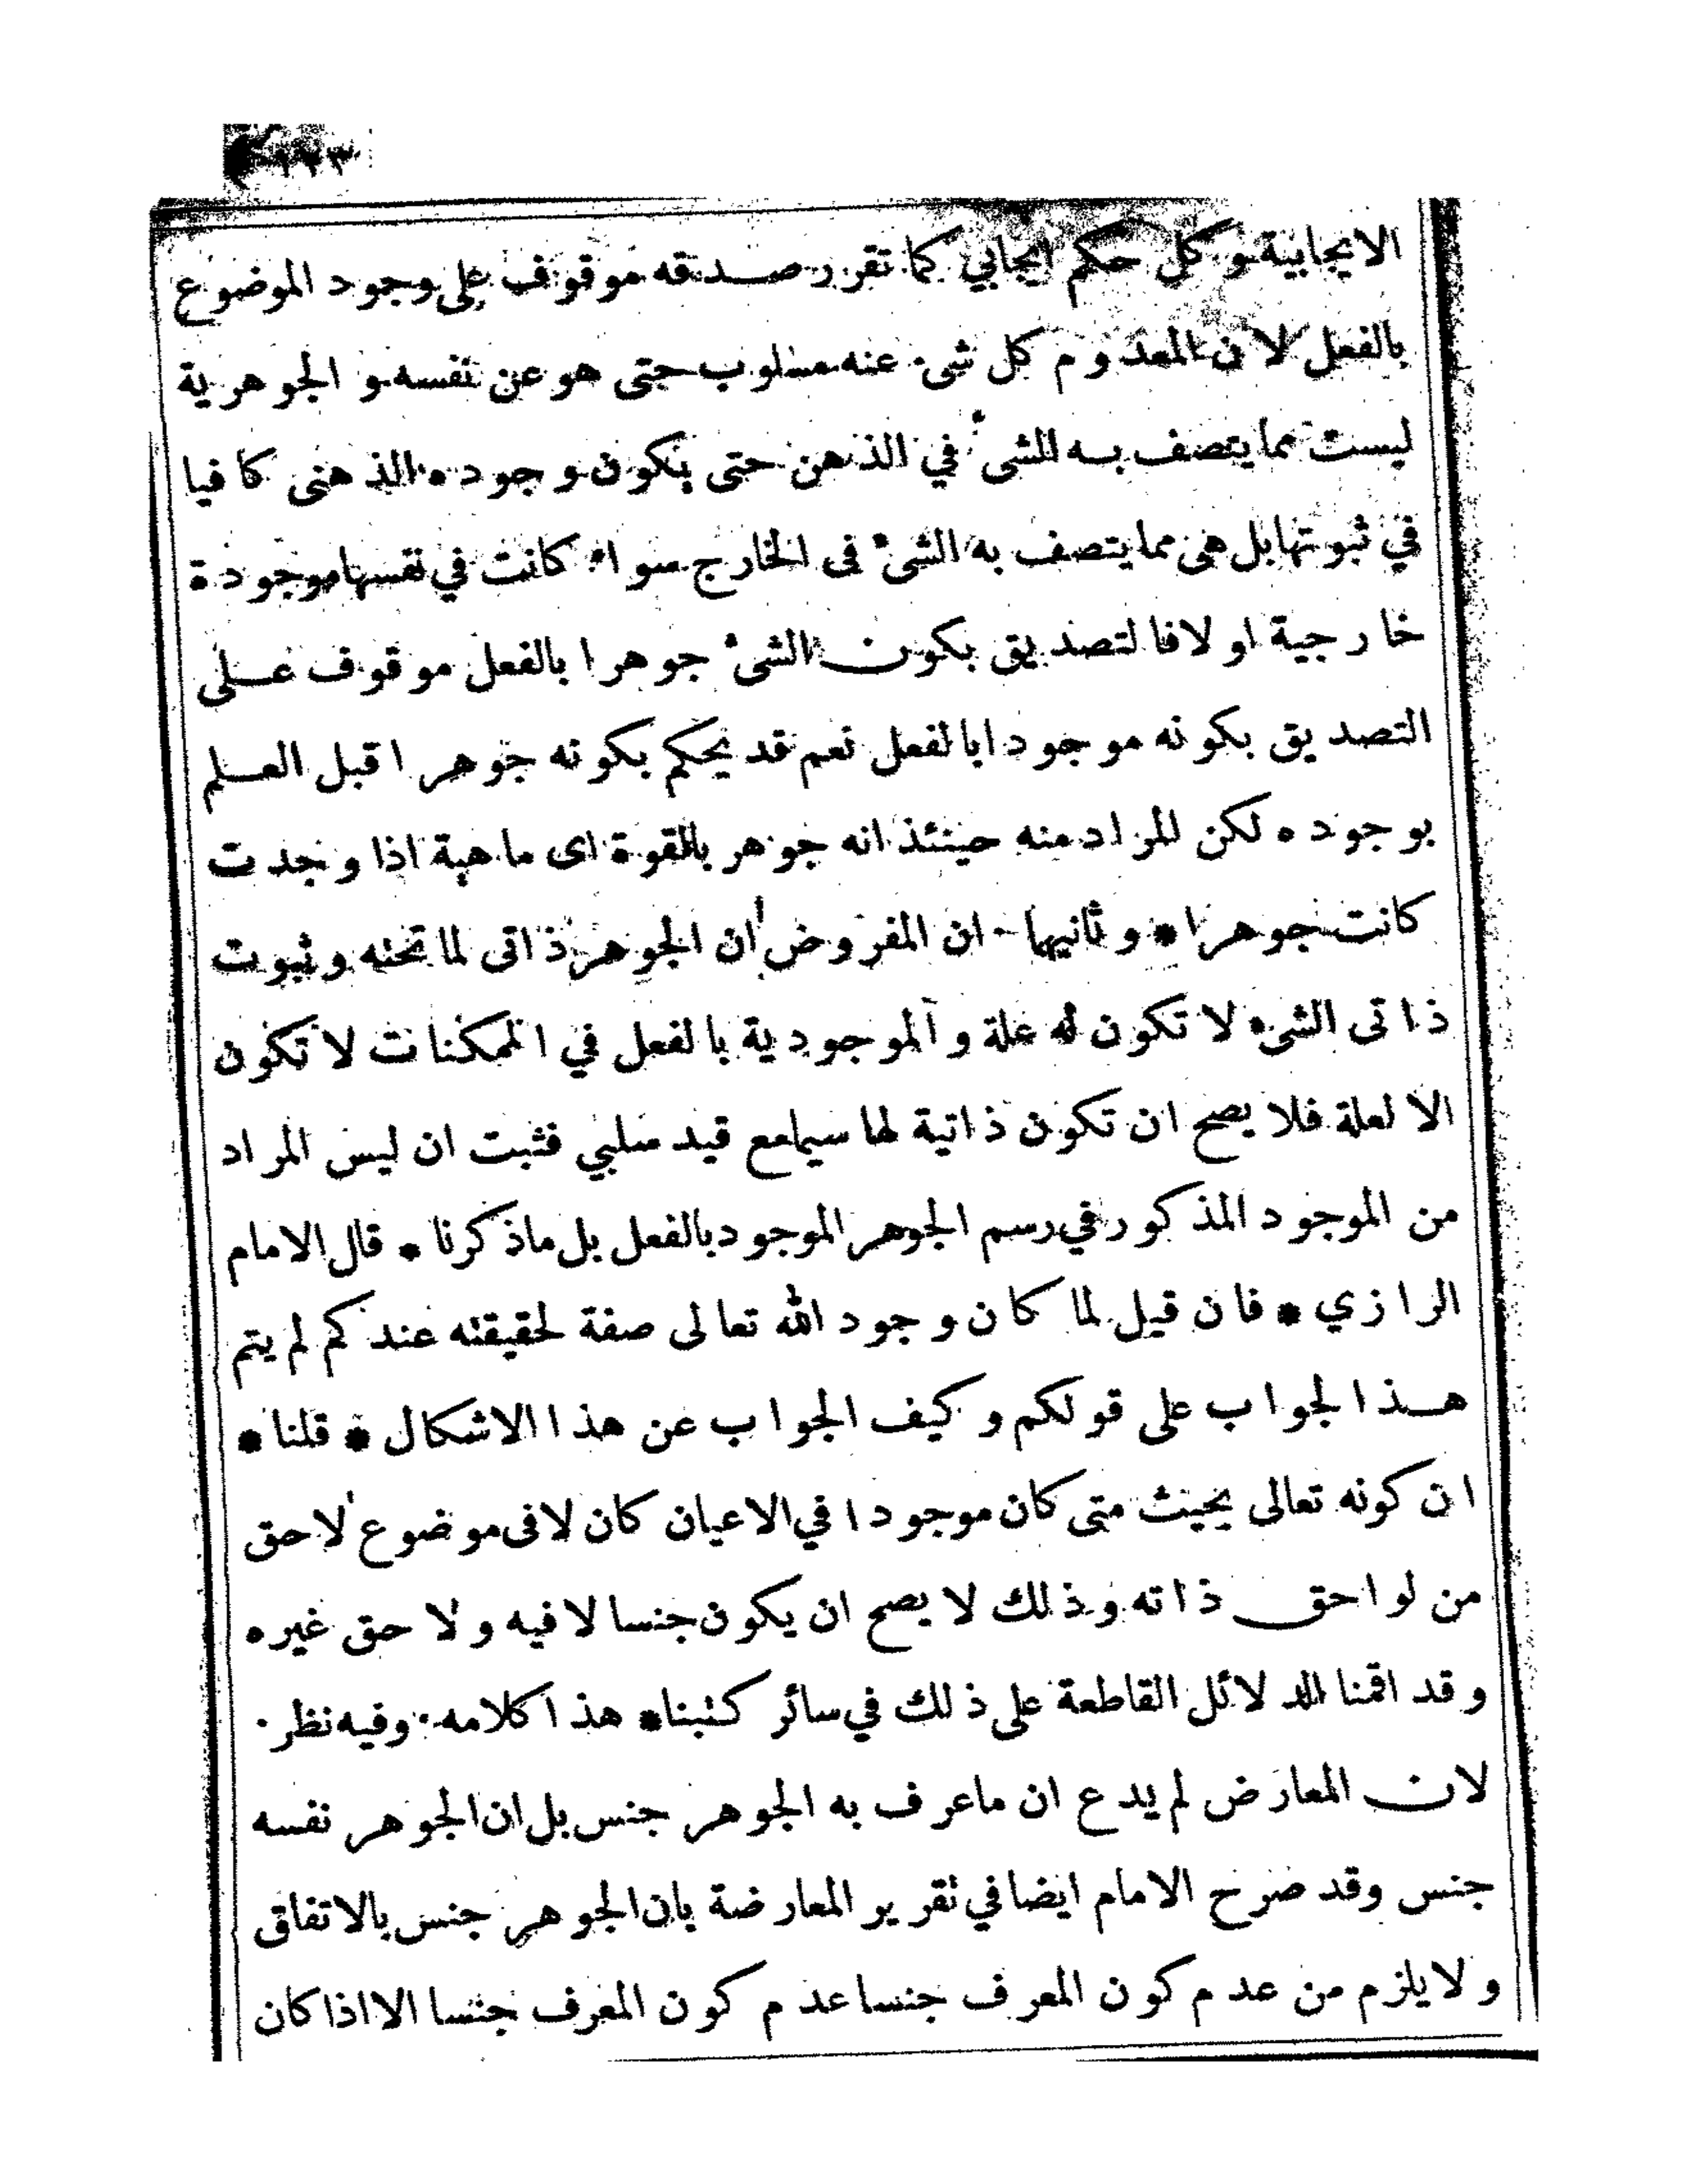 الايجابية و كل حكم ايجابي كما تقرر صدقه موقوف على وجود الموضوع
بالفعل لان المعدوم كل شىء عنه مسلوب حتى هو عن نفسه و الجوهرية
ليست مما يتصف به الشىء في الذهن حتى يكون وجوده الذهنى كافيا
في ثبوتها بل هى مما يتصف به الشىء فى الخارج سواء كانت في نفسها موجودة
خارجية او لا فالتصديق بكون الشىء جوهرا بالفعل موقوف على
التصديق بكونه موجودا بالفعل نعم قد يحكم بكونه جوهرا قبل العلم
بوجوده لكن المراد منه حينئذ انه جوهر بالقوة اى ماهية اذا وجدت
كانت جوهرا * و ثانيهما ان المفروض ان الجوهر ذاتى لما تحته و ثبوت
ذاتى الشىء لا تكون له علة و الموجودية بالفعل في الممكنات لا تكون
الا لعلة فلا يصح ان تكون ذاتية لها سيما مع قيد سلبي فثبت ان ليس المراد
من الموجود المذكور في رسم الجوهر الموجود بالفعل بل ما ذكرنا * قال الامام
الرازي * فان قيل لما كان وجود الله تعالى صفة لحقيقته عندكم لم يتم
هذا الجواب على قولكم و كيف الجواب عن هذا الاشكال * قلنا *
ان كونه تعالى بحيث متى كان موجودا في الاعيان كان لا فى موضوع لاحق
من لواحق ذاته و ذلك لا يصح ان يكون جنسا لا فيه و لا حق غيره
و قد اقمنا الدلائل القاطعة على ذلك في سائر كتبنا * هذا كلامه · وفيه نظر ·
لان المعارض لم يدع ان ما عرف به الجوهر جنس بل ان الجوهر نفسه
جنس وقد صرح الامام ايضا في تقرير المعارضة بان الجوهر جنس بالاتفاق
و لا يلزم من عدم كون المعرف جنسا عدم كون المعرف جنسا الا اذا كان